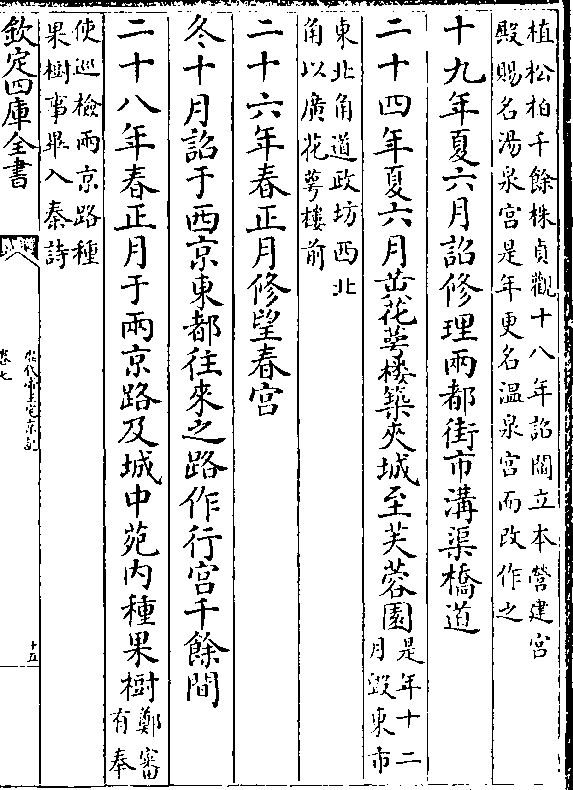 植松柏千餘株貞觀十八年詔閻立本營建宮
殿賜名湯泉宮是年更名温泉宮而改作之
十九年夏六月詔修理兩都街市溝渠橋道
二十四年夏六月花萼樓築夾城至芙蓉園
是年十二
月毀東市
東北角道政坊西北
角以廣花萼樓前
二十六年春正月修望春宮
冬十月詔于西京東都往來之路作行宮千餘間
二十八年春正月于兩京路及城中苑内種果樹
鄭審
有奉
使巡檢兩京路種
果樹事畢入秦詩
欽定四庫全書
歷代宅京記
卷七
十五